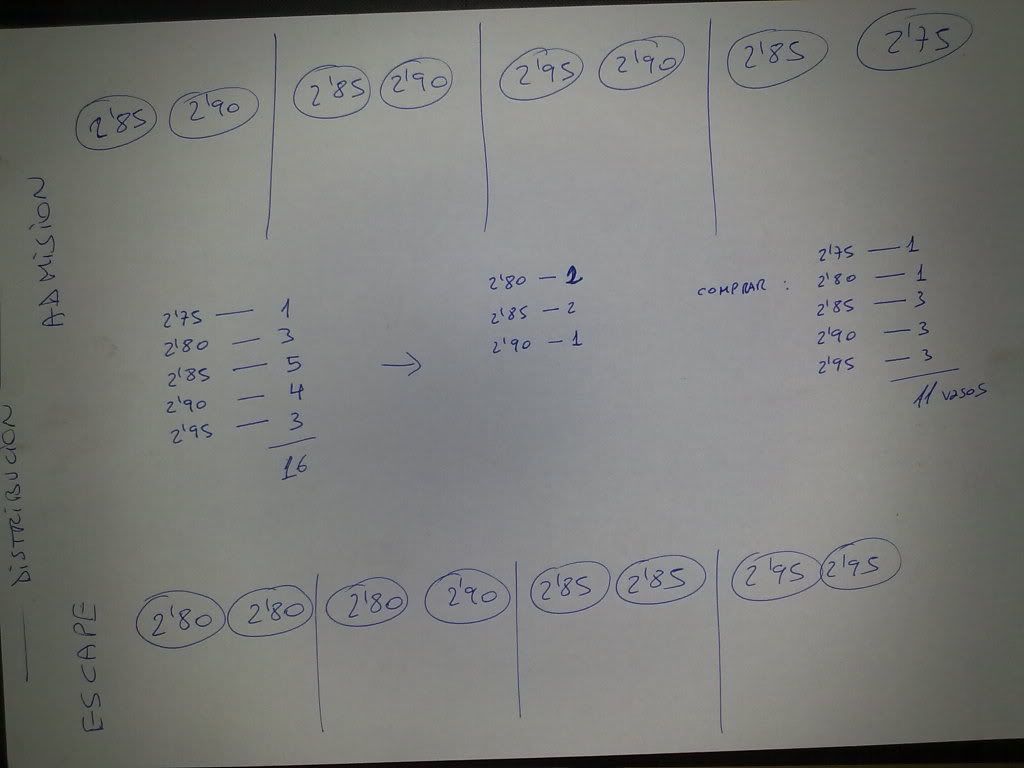 2'85 2'90 2'85 2'90 2'95 2'90 2'85 2'75
ADMISION
2'75 — 1
2'80 — 3
2'85 — 5
2'90 — 4
2'95 — 3
16
→
2'80 — 2
2'85 — 2
2'90 — 1
COMPRAR :
2'75 — 1
2'80 — 1
2'85 — 3
2'90 — 3
2'95 — 3
11 vasos
DISTRIBUCION
ESCAPE
2'80 2'80 2'80 2'90 2'85 2'85 2'95 2'95